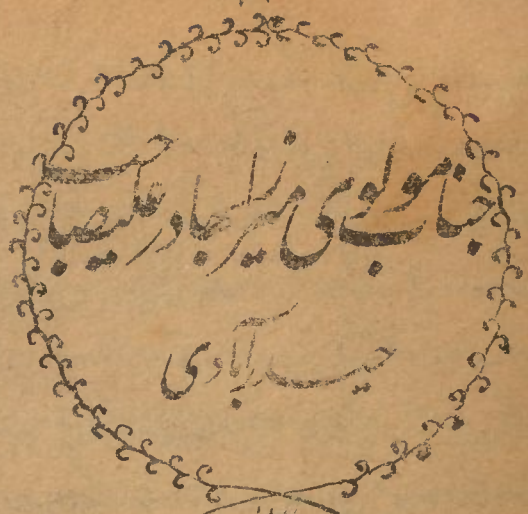 جناب مولوی میرزا بہادر علیصاحب
حیدرآبادی